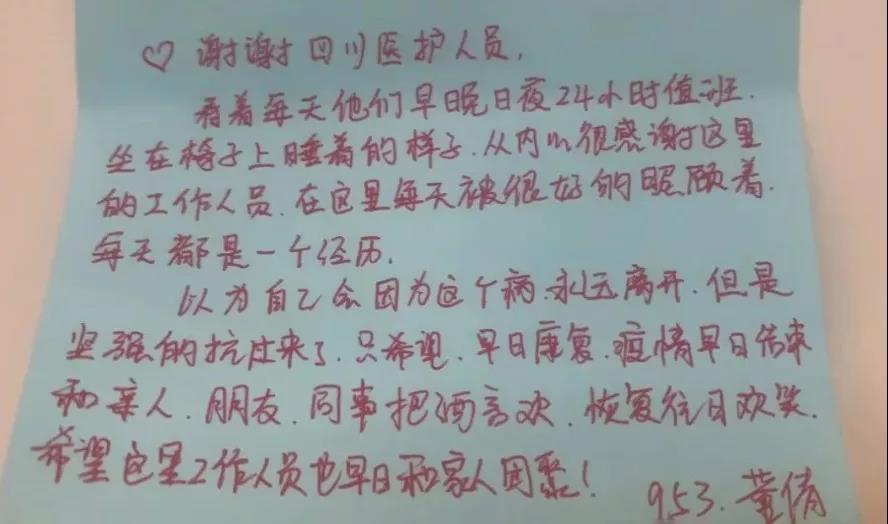 ♡ 谢谢四川医护人员,
看着每天他们早晚日夜24小时值班.
坐在椅子上睡着的样子.从内心很感谢这里
的工作人员.在这里每天被很好的照顾着.
每天都是一个经历.
以为自己会因为这个病.永远离开.但是
坚强的抗过来了.只希望.早日康复.疫情早日结束
和亲人.朋友.同事把酒言欢.恢复往日欢笑.
希望这里工作人员也早日和家人团聚!
953.董倩